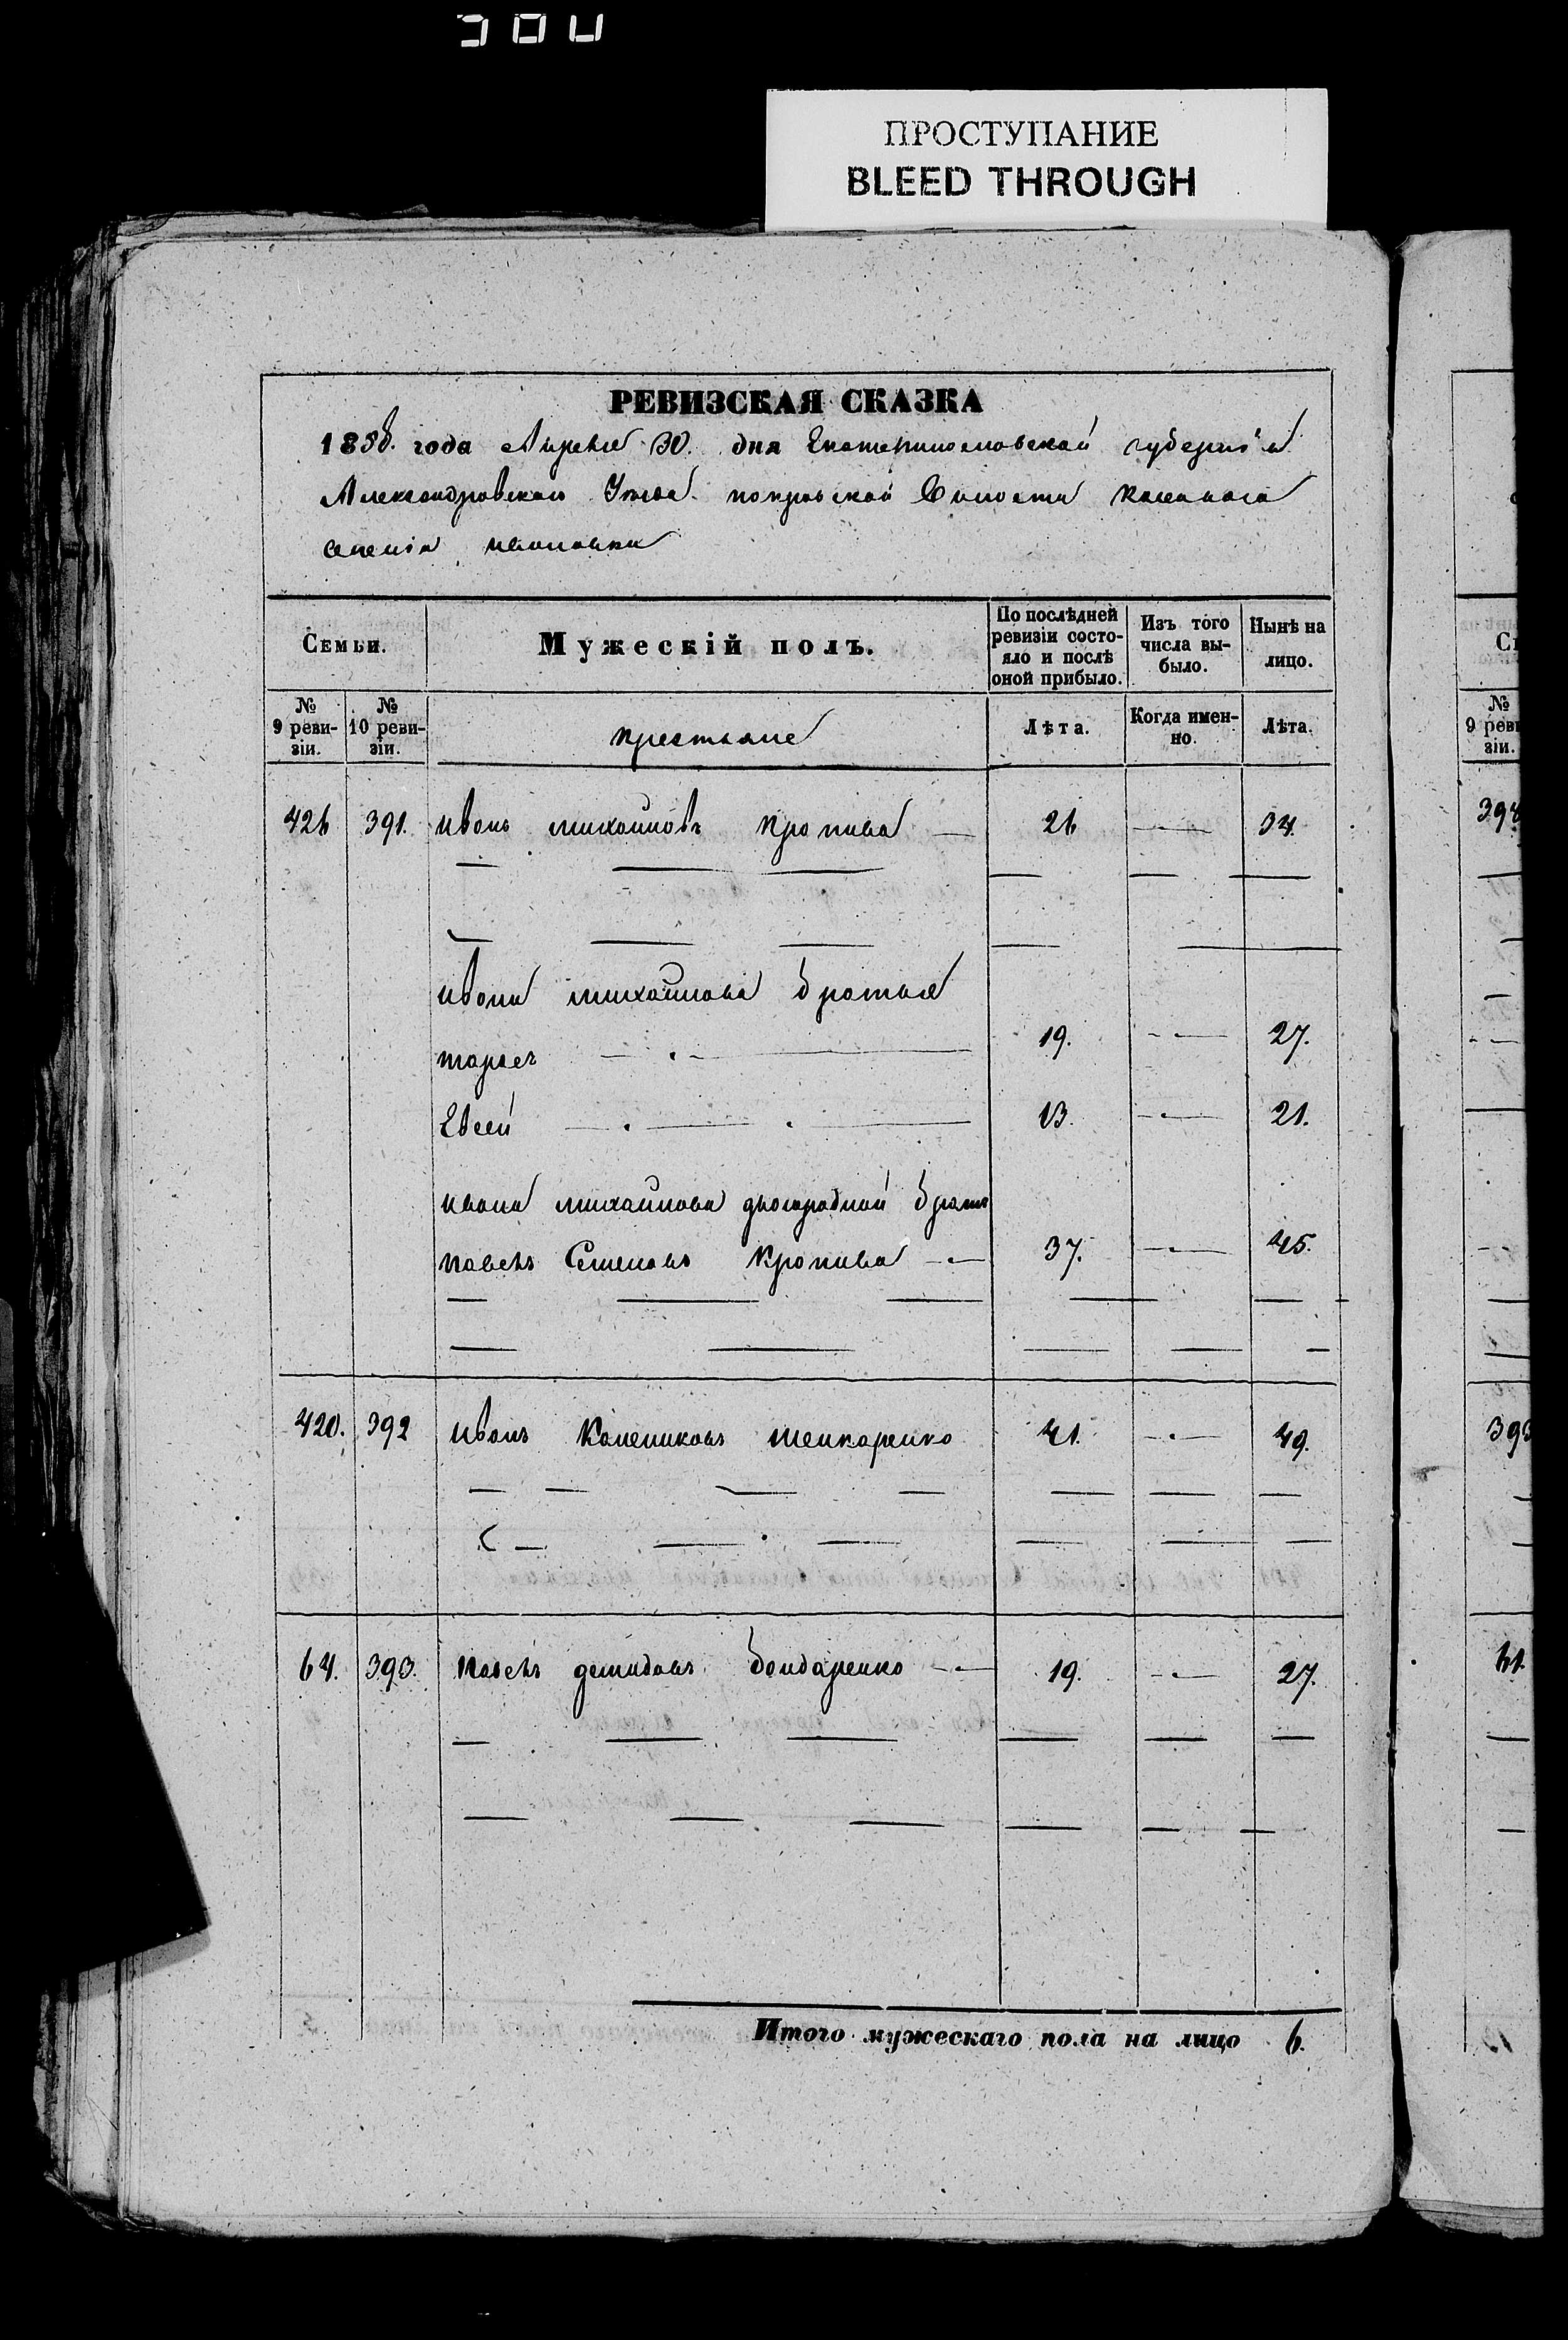 ПРОСТУПАНИЕ
BLEED THROUGH
РЕВИЗСКАЯ СКАЗКА
1858. года Апреля 30. дня Екатеринославской губерніи
Александровскаго Уезда покровской Волости казенаго
селенія
Семьи. Мужескій полъ. По послѣдней ревизіи состояло и послѣ оной прибыло. Изъ того числа выбыло. Нынѣ на лицо.
№ 9 ревизіи. № 10 ревизіи. крестьяне Лѣта. Когда именно. Лѣта.
426 391. иванъ михайловъ Кропива — 26 — 34.
ивана михайлова братья
тарасъ — 19. — 27.
Евсей — 13. — 21.
ивана михайлова двоюродной братъ
павелъ Семеновъ Кропива — 37. — 45.
420. 392 иванъ Калениковъ шенкаренко 41. — 49.
64. 393. Павелъ демидовъ бондаренко — 19. — 27.
Итого мужескаго пола на лицо 6.